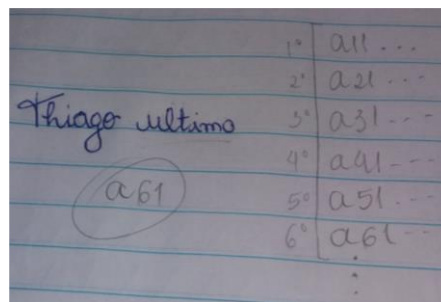 Thiago ultimo
a61
1° a11 ...
2° a21 ...
3° a31 ...
4° a41 ...
5° a51 ...
6° a61 ...
⋮